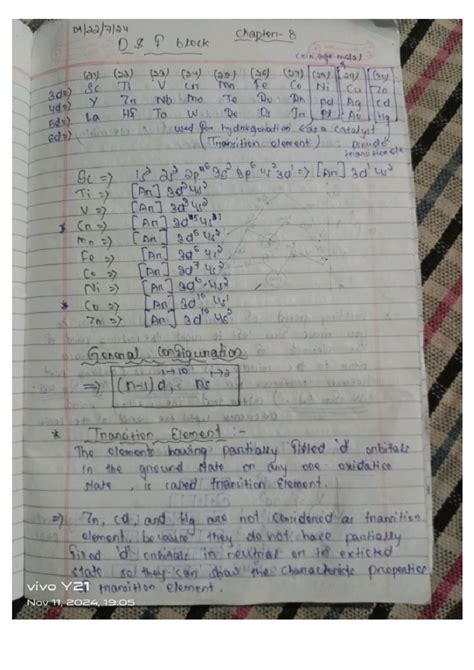 01/22/7/24
D & F block
Chapter-8
coin age metal
(21) (22) (23) (24) (25) (26) (27) (28) (29) (30)
3d=) Sc Ti V Cr Mn Fe Co Ni Cu Zn
4d=) Y Zn Nb Mo Te Pd Ag Cd
5d=) La Hf Ta W Pt Au Hg
6d=) used for hydrogenation as a catalyst
(Transition element) Pseudo
transition ele
Sc => 1s² 2s² 2p⁶ 3s² 3p⁶ 4s² 3d¹ => [Ar] 3d¹ 4s²
Ti => [Ar] 3d² 4s²
V => [Ar] 3d³ 4s²
* Cr => [Ar] 3d⁵ 4s¹
Mn => [Ar] 3d⁵ 4s²
Fe => [Ar] 3d⁶ 4s²
Co => [Ar] 3d⁷ 4s²
Ni => [Ar] 3d⁸ 4s²
* Cu => [Ar] 3d¹⁰ 4s¹
Zn => [Ar] 3d¹⁰ 4s²
General configuration
=> (n-1)d¹⁻¹⁰ ns¹⁻²
* Transition Element :-
The elements having partially filled 'd' orbitals
in the ground state or any one oxidation
state, is called transition element.
=> Zn, cd, and Hg are not considered as transition
element because they do not have partially
filled 'd' orbitals in neutrial or in exticted
state so they can show the characteristic properties
transition element.
vivo Y21
Nov 11, 2024, 19:05